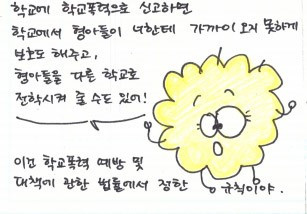 학교에 학교폭력으로 신고하면
학교에서 형아들이 너한테 가까이 오지 못하게
보호도 해주고,
형아들을 다른 학교로
전학시켜 줄 수도 있어!
이건 학교폭력 예방 및
대책에 관한 법률에서 정한 규칙이야.